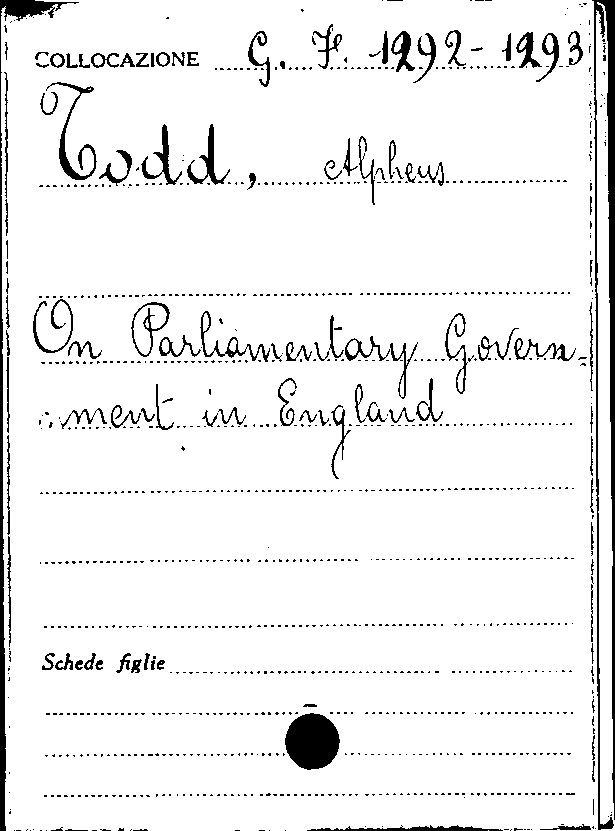 COLLOCAZIONE G. F. 1292-1293
Todd, Alpheus
On Parliamentary Govern-
ment in England
Schede figlie